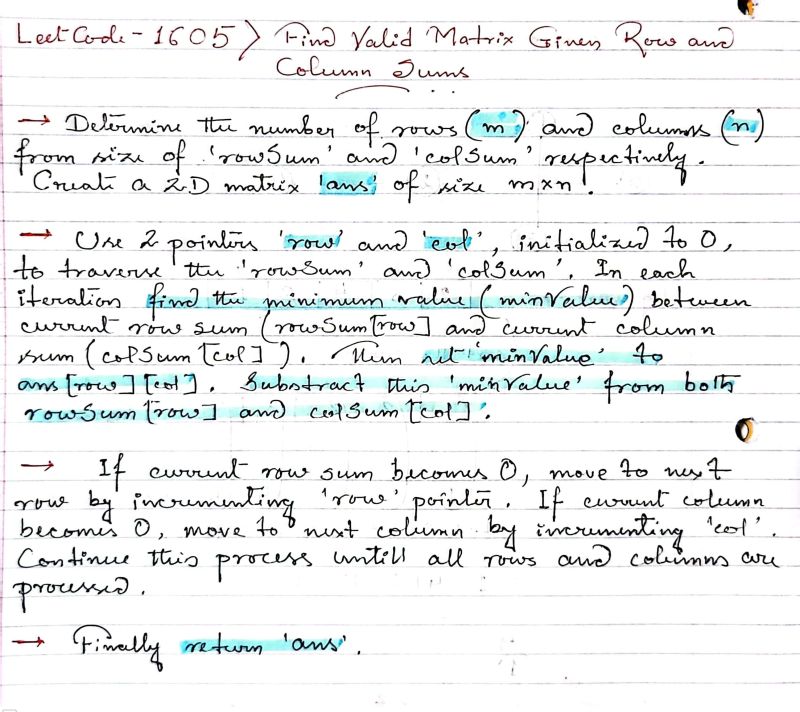 LeetCode - 1605 > Find Valid Matrix Given Row and
Column Sums
→ Determine the number of rows (m) and columns (n)
from size of 'rowSum' and 'colSum' respectively.
Create a 2D matrix 'ans' of size m×n.
→ Use 2 pointers 'row' and 'col', initialized to 0,
to traverse the 'rowSum' and 'colSum'. In each
iteration find the minimum value (minValue) between
current row sum (rowSum[row] and current column
sum (colSum[col]). Then set 'minValue' to
ans[row][col]. Substract this 'minValue' from both
rowSum[row] and colSum[col].
→ If current row sum becomes 0, move to next
row by incrementing 'row' pointer. If current column
becomes 0, move to next column by incrementing 'col'.
Continue this process untill all rows and columns are
processed.
→ Finally return 'ans'.